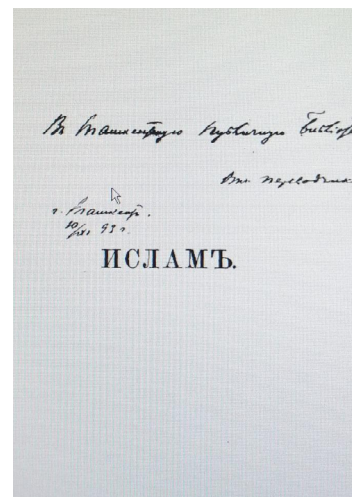 Въ Ташкентскую публичную Библіо
Отъ переводчика
г. Ташкентъ.
10/XI 93 г.
ИСЛАМЪ.